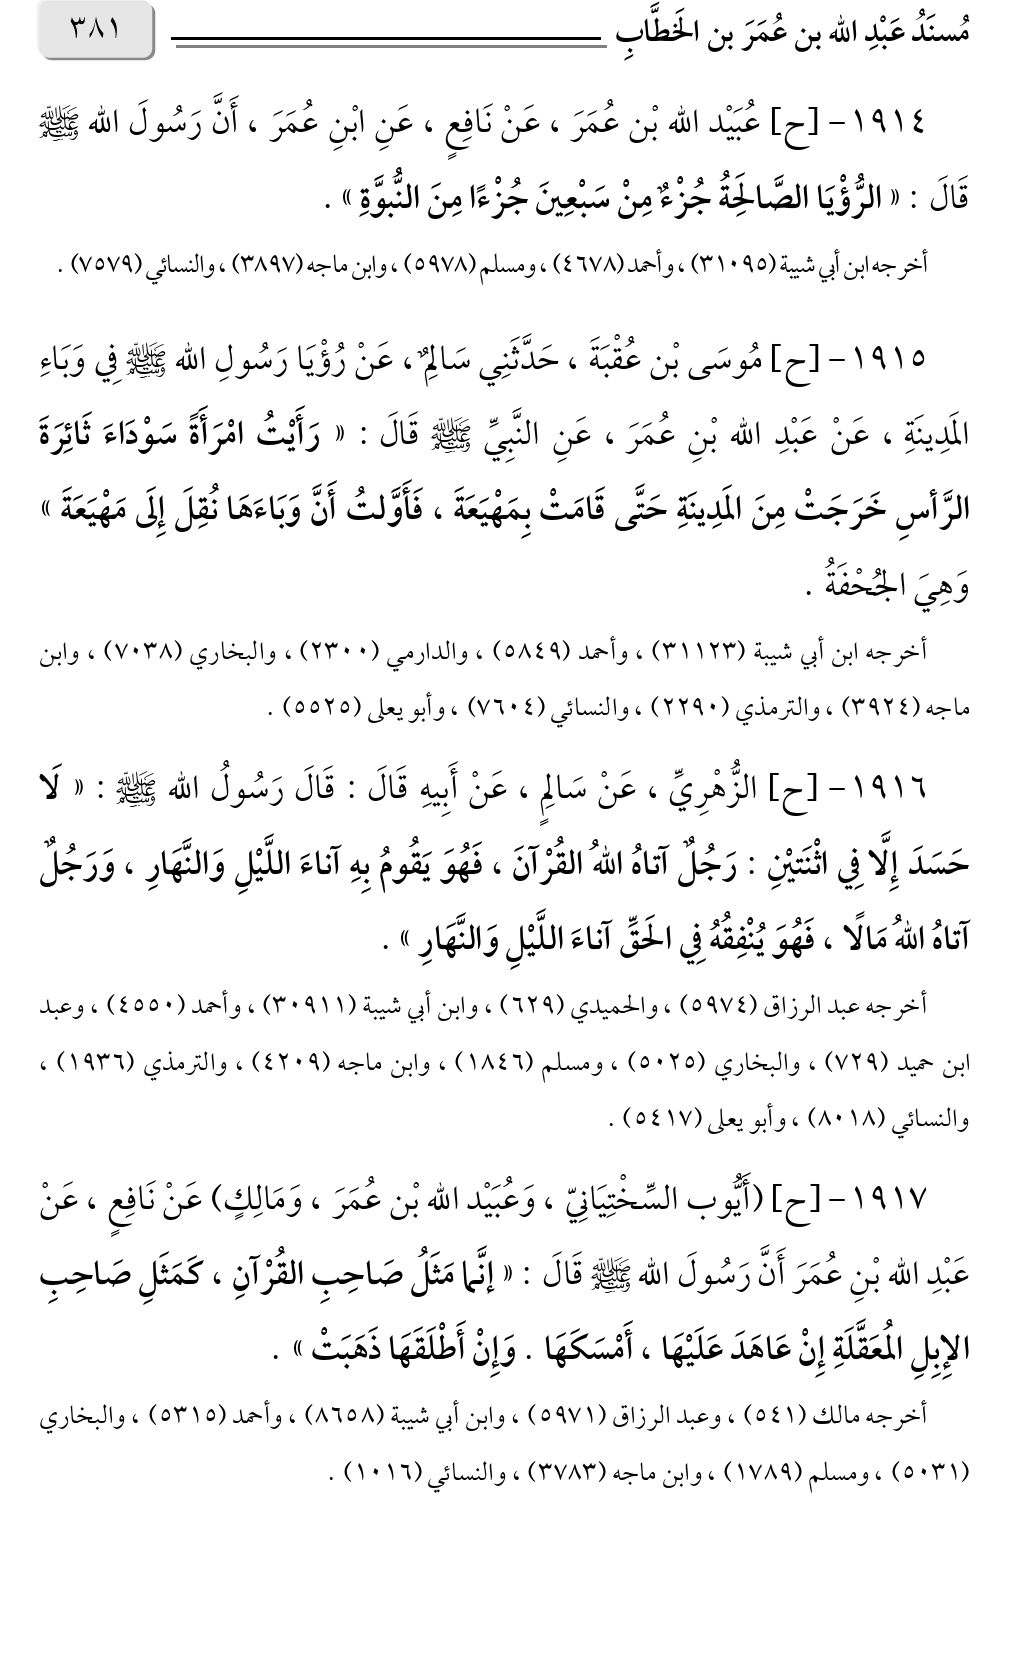 مُسنَدُ عَبْدِ الله بن عُمَرَ بن الخَطَّابِ ٣٨١
١٩١٤- [ح] عُبَيْد الله بْن عُمَرَ ، عَنْ نَافِعٍ ، عَنِ ابْنِ عُمَرَ ، أَنَّ رَسُولَ الله ﷺ
قَالَ : « الرُّؤْيَا الصَّالِحَةُ جُزْءٌ مِنْ سَبْعِينَ جُزْءًا مِنَ النُّبوَّةِ » .
أخرجه ابن أبي شيبة (٣١٠٩٥) ، وأحمد (٤٦٧٨) ، ومسلم (٥٩٧٨) ، وابن ماجه (٣٨٩٧) ، والنسائي (٧٥٧٩) .
١٩١٥- [ح] مُوسَى بْن عُقْبَةَ ، حَدَّثَنِي سَالِمٌ ، عَنْ رُؤْيَا رَسُولِ الله ﷺ فِي وَبَاءِ
المَدِينَةِ ، عَنْ عَبْدِ الله بْنِ عُمَرَ ، عَنِ النَّبِيِّ ﷺ قَالَ : « رَأَيْتُ امْرَأَةً سَوْدَاءَ ثَائِرَةَ
الرَّأسِ خَرَجَتْ مِنَ المَدِينَةِ حَتَّى قَامَتْ بِمَهْيَعَةَ ، فَأَوَّلتُ أَنَّ وَبَاءَهَا نُقِلَ إِلَى مَهْيَعَةَ »
وَهِيَ الجُحْفَةُ .
أخرجه ابن أبي شيبة (٣١١٢٣) ، وأحمد (٥٨٤٩) ، والدارمي (٢٣٠٠) ، والبخاري (٧٠٣٨) ، وابن
ماجه (٣٩٢٤) ، والترمذي (٢٢٩٠) ، والنسائي (٧٦٠٤) ، وأبو يعلى (٥٥٢٥) .
١٩١٦- [ح] الزُّهْرِيِّ ، عَنْ سَالِمٍ ، عَنْ أَبِيهِ قَالَ : قَالَ رَسُولُ الله ﷺ : « لَا
حَسَدَ إِلَّا فِي اثْنَتيْنِ : رَجُلٌ آتاهُ اللهُ القُرْآنَ ، فَهُوَ يَقُومُ بِهِ آناءَ اللَّيْلِ وَالنَّهَارِ ، وَرَجُلٌ
آتاهُ اللهُ مَالًا ، فَهُوَ يُنْفِقُهُ فِي الحَقِّ آناءَ اللَّيْلِ وَالنَّهَارِ » .
أخرجه عبد الرزاق (٥٩٧٤) ، والحميدي (٦٢٩) ، وابن أبي شيبة (٣٠٩١١) ، وأحمد (٤٥٥٠) ، وعبد
ابن حميد (٧٢٩) ، والبخاري (٥٠٢٥) ، ومسلم (١٨٤٦) ، وابن ماجه (٤٢٠٩) ، والترمذي (١٩٣٦) ،
والنسائي (٨٠١٨) ، وأبو يعلى (٥٤١٧) .
١٩١٧- [ح] (أَيُّوب السِّخْتِيَانِيّ ، وَعُبَيْد الله بْن عُمَرَ ، وَمَالِكٍ) عَنْ نَافِعٍ ، عَنْ
عَبْدِ الله بْنِ عُمَرَ أَنَّ رَسُولَ الله ﷺ قَالَ : « إنَّما مَثَلُ صَاحِبِ القُرْآنِ ، كَمَثَلِ صَاحِبِ
الإِبِلِ المُعَقَّلَةِ إِنْ عَاهَدَ عَلَيْهَا ، أَمْسَكَهَا . وَإِنْ أَطْلَقَهَا ذَهَبَتْ » .
أخرجه مالك (٥٤١) ، وعبد الرزاق (٥٩٧١) ، وابن أبي شيبة (٨٦٥٨) ، وأحمد (٥٣١٥) ، والبخاري
(٥٠٣١) ، ومسلم (١٧٨٩) ، وابن ماجه (٣٧٨٣) ، والنسائي (١٠١٦) .